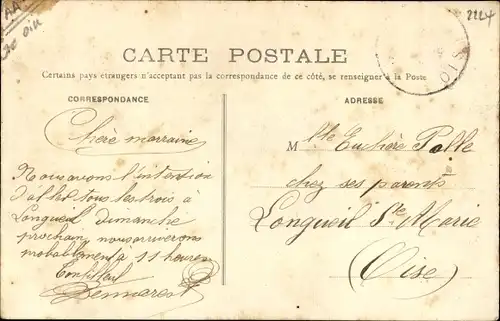 2224
CARTE POSTALE
Certains pays étrangers n'acceptant pas la correspondance de ce côté, se renseigner à la Poste
CORRESPONDANCE
Chère marraine
Nous avons l'intention
d'aller tous les trois à
Longueil dimanche
prochain, nous arriverons
probablement à 11 heures
Demarest
ADRESSE
M lle Palle
chez ses parents
Longueil Ste Marie
(Oise)